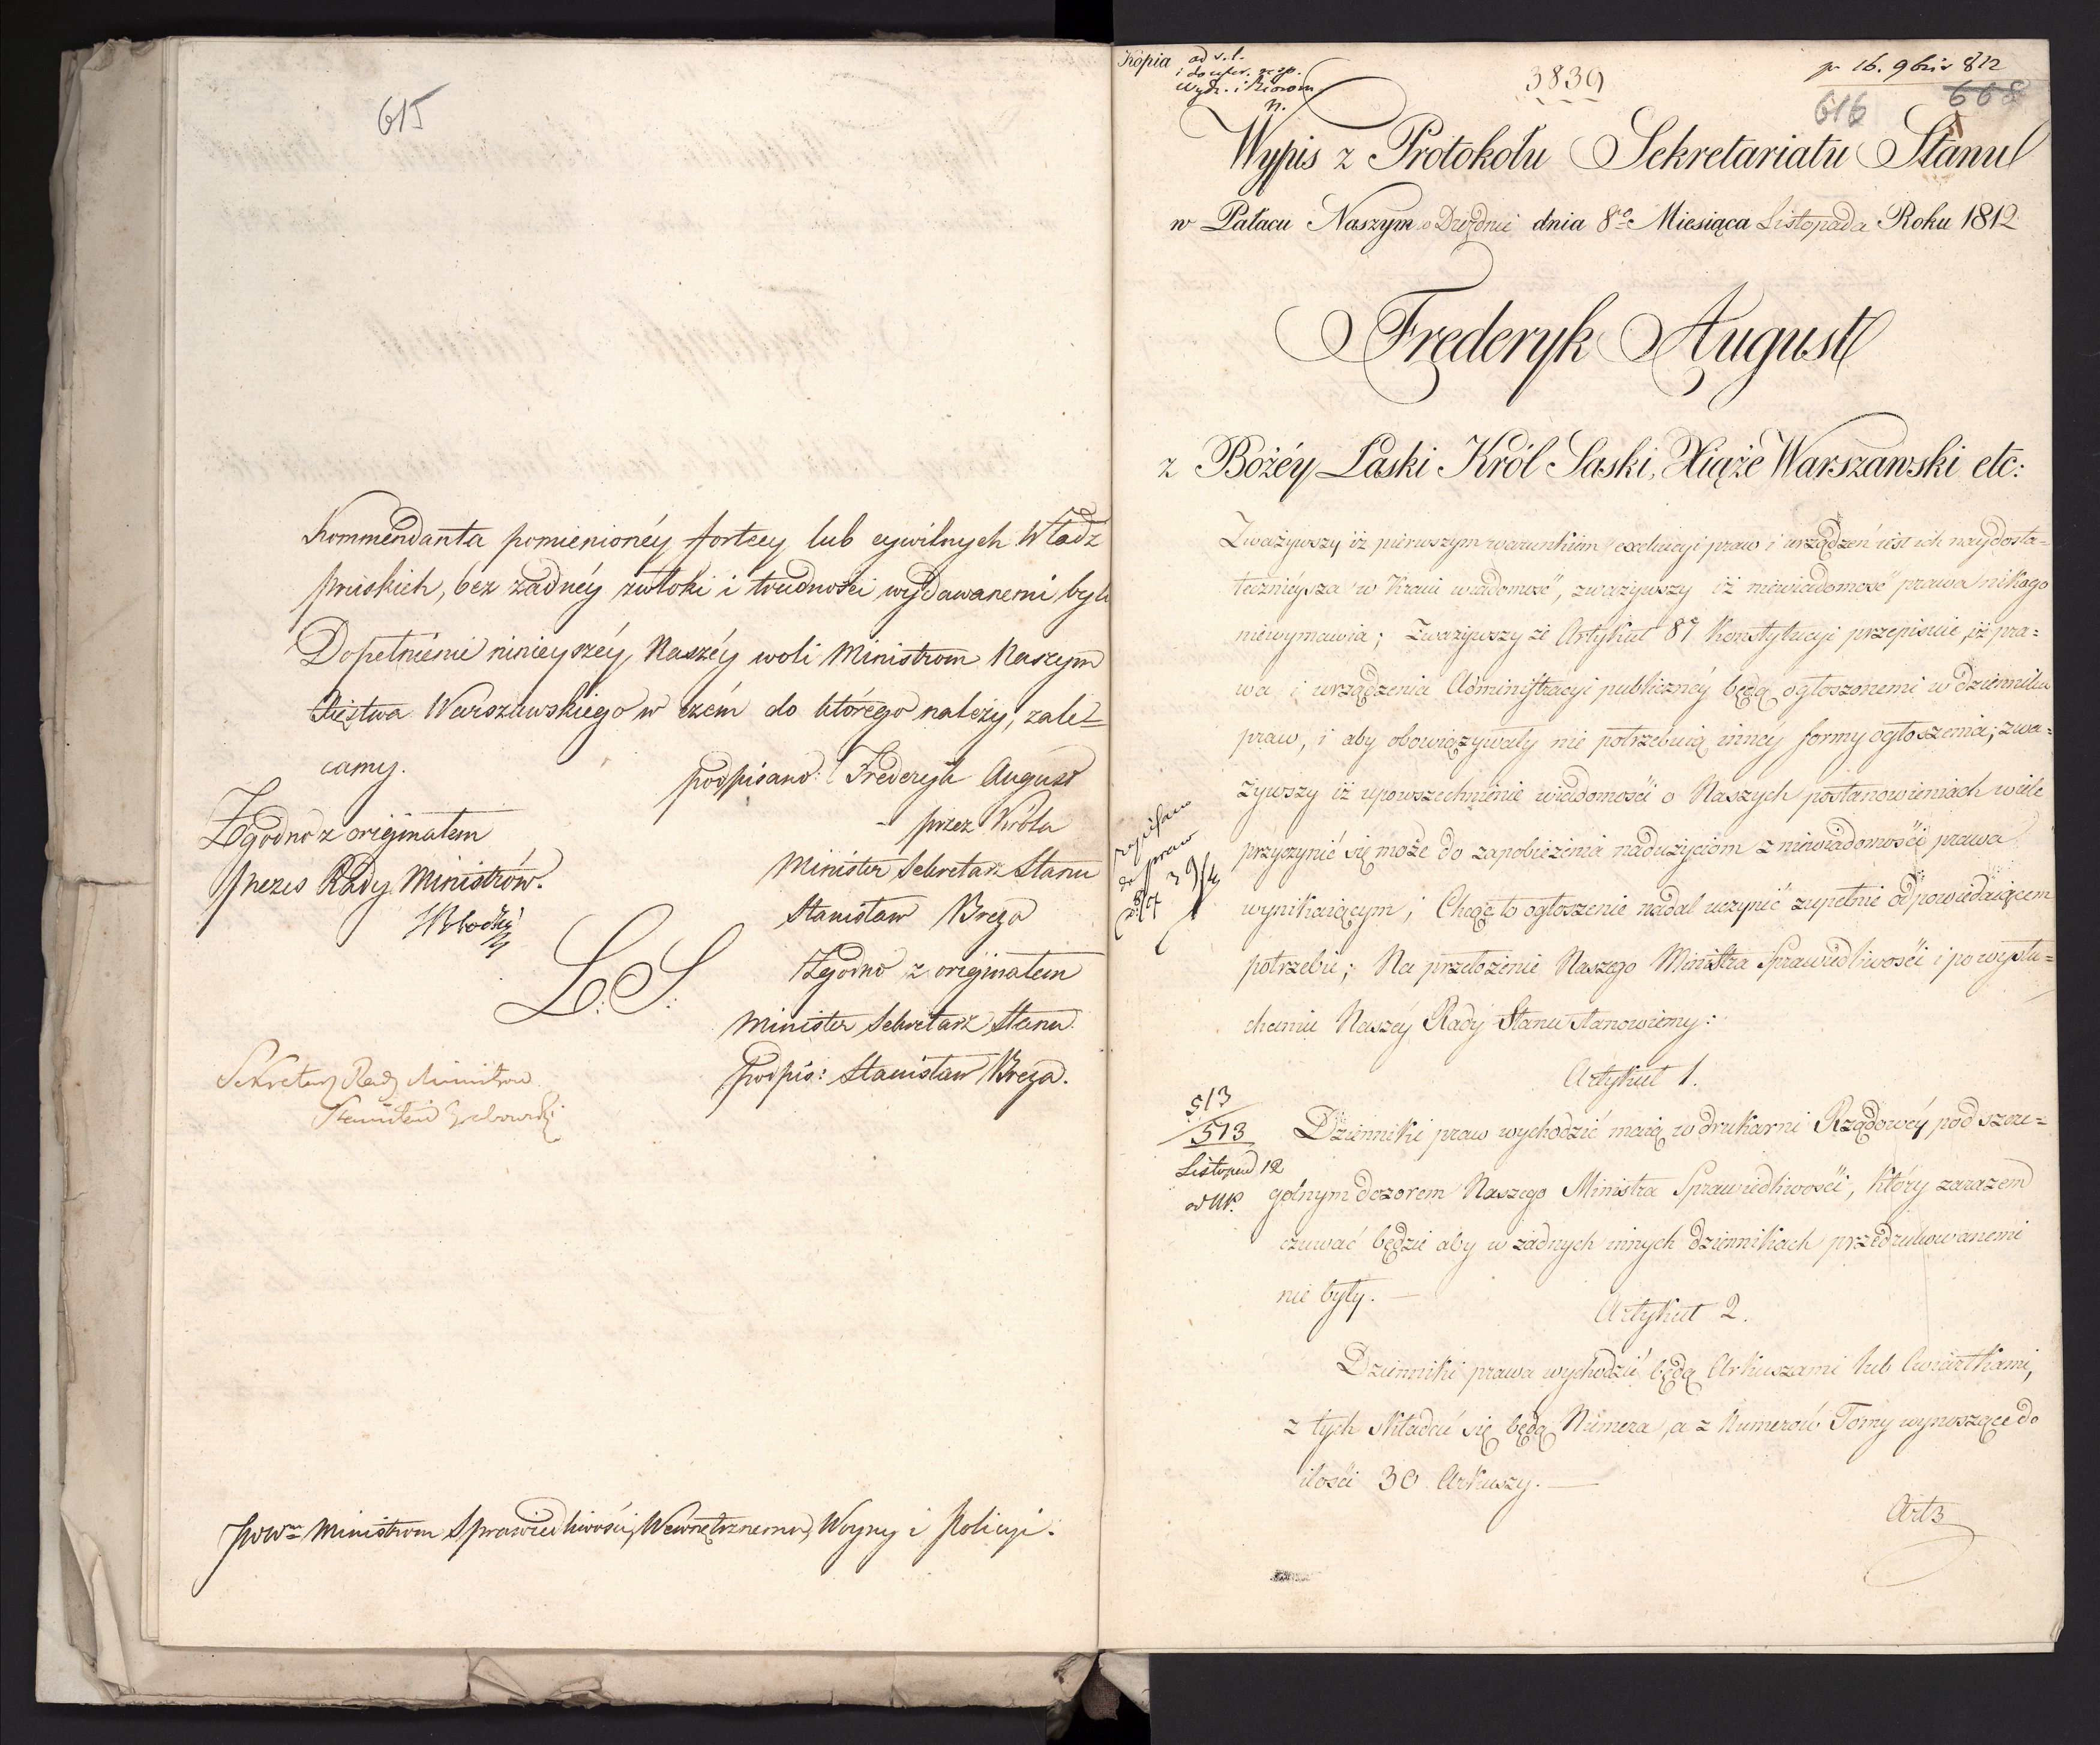 615
Kommendanta pomienionéy fortecy lub cywilnych Władz
Pruskich, bez żadnéy zwłoki i trudności wydawanemi były
Dopełnienie ninieyszéy Naszéy woli Ministrom Naszym
Xięstwa Warszawskiego w czém do którego należy, zale=
camy.
podpisano: Frederyk August
przez Króla
Minister Sekretarz Stanu
Stanisław Breza
Zgodno z oryginałem
Minister Sekretarz Stanu
podpis: Stanisław Breza.
Zgodno z oryginałem
Prezes Rady Ministrów.
L. S.
Sekretarz Rady Ministrów
Stanisław Grabowski
Ministrom Sprawiedliwości, Wewnętrznemu, Woyny i Policyi.
Kopia
3839
16. 9bris 812
616 668
Wypis z Protokołu Sekretariatu Stanu
w Pałacu Naszym w Dreźnie dnia 8go Miesiąca Listopada Roku 1812
Frederyk August
z Bożéy Łaski Król Saski, Xiąże Warszawski etc:
Zważywszy iż pierwszym warunkiem exekucyi praw i urządzeń iest ich naydosta=
tecznieysza w Kraiu wiadomość, zważywszy iż niewiadomość prawa nikogo
niewymawia; Zważywszy że Artykuł 87 Konstytucyi przepisuie, iż pra=
wa i urządzenia Administracyi publicznéy będą ogłoszonemi w dzienniku
praw, i aby obowiązywały nie potrzebuią innéy formy ogłoszenia; zwa=
żywszy iż upowszechnienie wiadomości o Naszych postanowieniach wiele
przyczynić się może do zapobieżenia nadużyciom z niewiadomości prawa
wynikaiącym; Chcąc to ogłoszenie nadal uczynić zupełnie odpowiadaiącem
potrzebie; Na przełożenie Naszego Ministra Sprawiedliwości i po wysłu=
chaniu Naszéy Rady Stanu stanowiemy:
Artykuł 1.
513
513
Listopad 12
Dzienniki praw wychodzić maią w drukarni Rządowéy pod szcze=
gólnym dozorem Naszego Ministra Sprawiedliwości, który zarazem
czuwać będzie aby w żadnych innych dziennikach przedrukowanemi
nie były.
Artykuł 2.
Dzienniki prawa wychodzić będą Arkuszami lub ćwiartkami,
z tych składać się będą Numera, a z Numerów Tomy wynoszące do
ilości 30 Arkuszy.
Art 3